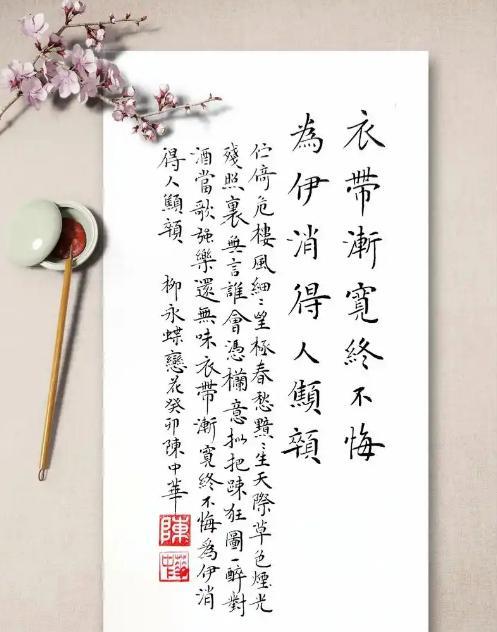 衣帶漸寬終不悔
為伊消得人顦顇
伫倚危樓風細〻望極春愁黯〻生天際草色煙光
殘照裏無言誰會憑欄意拟把疎狂圖一醉對
酒當歌強樂還無味衣帶漸寬終不悔為伊消
得人顦顇 柳永蝶戀花癸卯陳中華
陳
中華